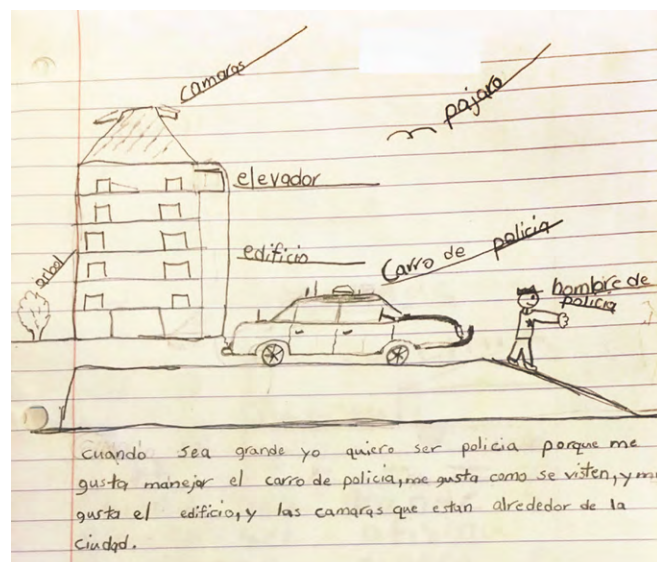 camaras
pájaro
elevador
edificio
arbol
Carro de policia
hombre de
policia
Cuando sea grande yo quiero ser policia porque me
gusta manejar el carro de policia, me gusta como se visten, y me
gusta el edificio, y las camaras que estan alrededor de la
ciudad.